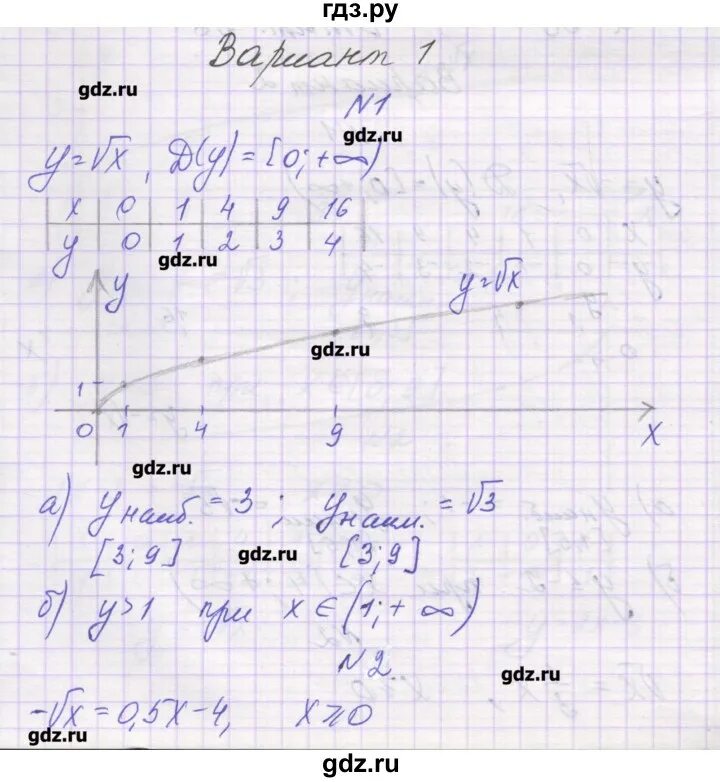 гдз.ру
Вариант 1
gdz.ru
N1
gdz.ru
y=√x, D(y)=[0;+∞)
x 0 1 4 9 16
y 0 1 2 3 4
gdz.ru
y
y=√x
gdz.ru
1
0 1 4 9 x
gdz.ru
а) y наиб. = 3 ; y наим. = √3
[3;9] [3;9]
gdz.ru
б) y>1 при x∈(1;+∞)
N2
gdz.ru
-√x = 0,5x-4, x⩾0
gdz.ru
gdz.ru